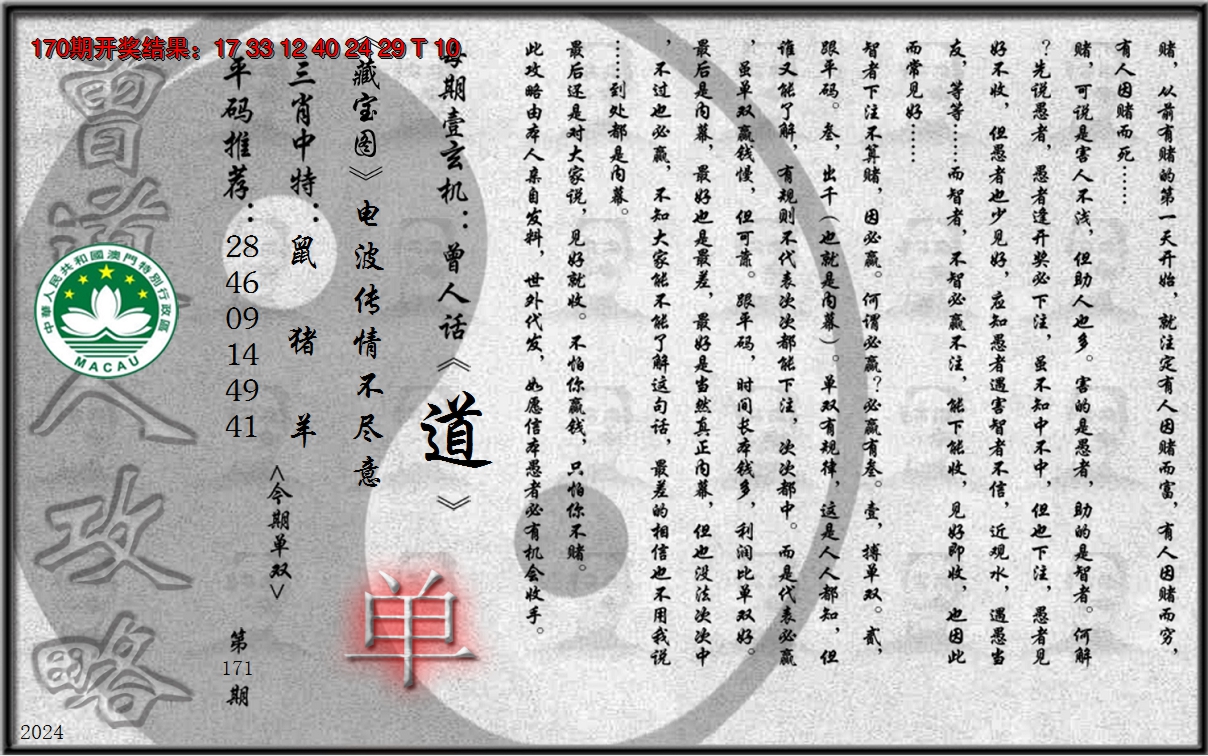 170期开奖结果：17 33 12 40 24 29 T 10
赌，从前有赌的第一天开始，就注定有人因赌而富，有人因赌而穷，
有人因赌而死……
赌，可说是害人不浅，但助人也多。害的是愚者，助的是智者。何解
？先说愚者，愚者逢开奖必下注，虽不知中不中，但也下注，愚者见
好不收，但愚者也少见好，应知愚者遇害智者不信，近观水，遇愚当
友，等等……而智者，不智必赢不注，能下能收，见好即收，也因此
而常见好……
智者下注不算赌，因必赢。何谓必赢？必赢有叁。壹，搏单双。贰，
跟平码。叁，出千（也就是内幕）。单双有规律，这是人人都知，但
谁又能了解，有规则不代表次次都能下注，次次都中。而是代表必赢
，虽单双赢钱慢，但可靠。跟平码，时间长本钱多，利润比单双好。
最后是内幕，最好也是最差，最好是当然真正内幕，但也没法次次中
，不过也必赢，不知大家能不能了解这句话，最差的相信也不用我说
……到处都是内幕。
最后还是对大家说，见好就收。不怕你赢钱，只怕你不赌。
此攻略由本人亲自发料，世外代发，如愿信本愚者必有机会收手。
每期壹玄机：曾人话《道》
《藏宝图》电波传情不尽意
三肖中特：鼠 猪 羊
<今期单双>
单
平码推荐：28 46 09 14 49 41
第171期
曾道人攻略
中華人民共和國澳門特別行政區
MACAU
2024